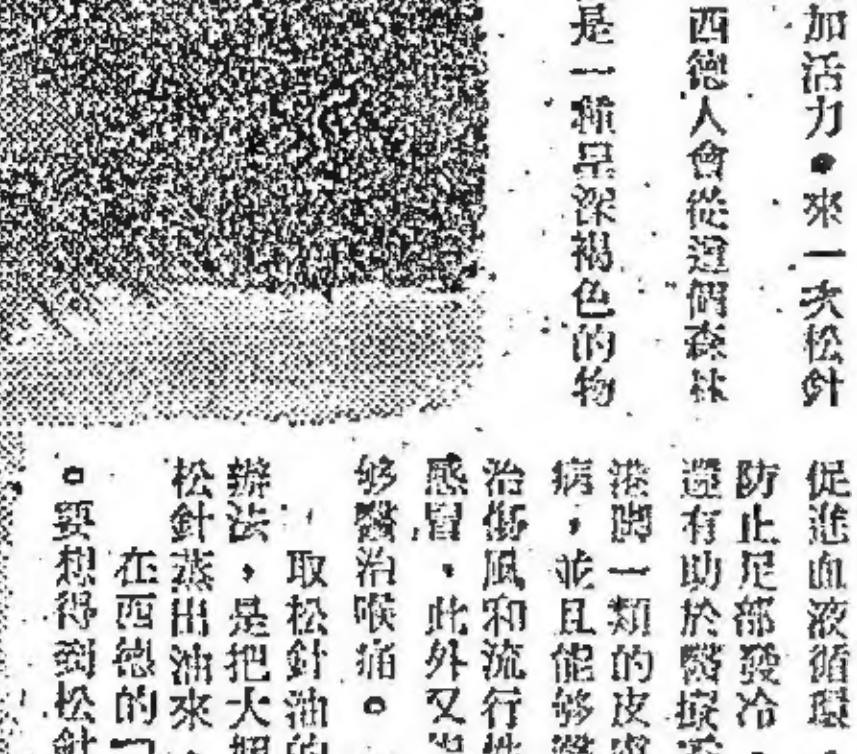 加活力。來一次松針
西德人會從這個森林
是一種呈深褐色的物
促進血液循環
防止足部發冷
還有助於醫療
港脚一類的皮膚
病，並且能够
治傷風和流行性
感冒，此外又
够醫治喉痛。
取松針油的
辦法，是把大
松針蒸出油來，
在西德的
。要想得到松針